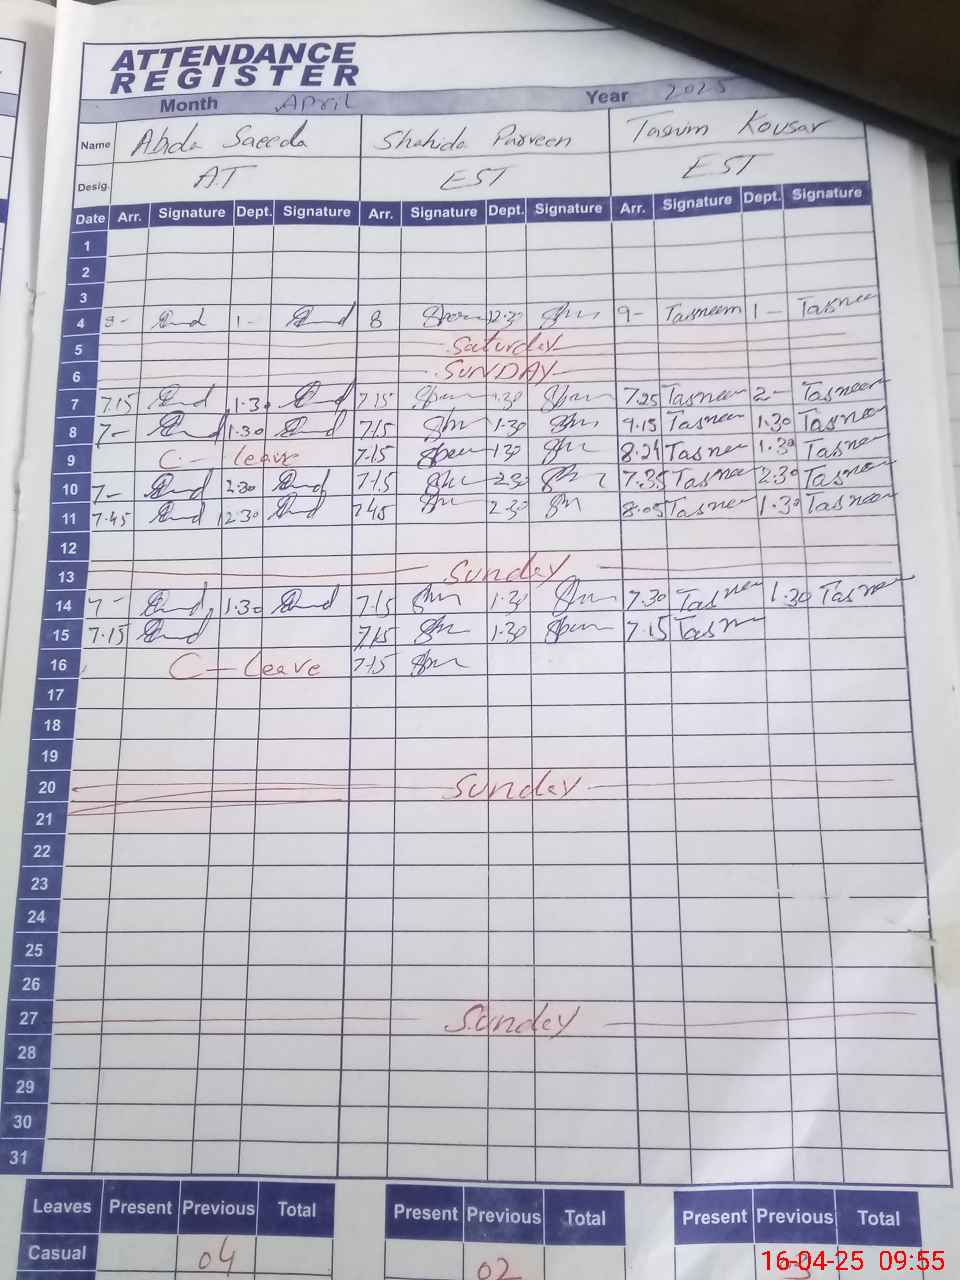 ATTENDANCE
REGISTER
Month April Year 2025
Name Abida Saeeda Shahida Parveen Tasnim Kousar
Desig. AT EST EST
Date Arr. Signature Dept. Signature Arr. Signature Dept. Signature Arr. Signature Dept. Signature
1
2
3
4 1- 8 12:30 9- Tasneem 1- Tasneem
5 Saturday
6 SUNDAY
7 7.15 1.30 7.15 1.30 7.25 Tasneem 2- Tasneem
8 7- 1.30 7.15 1.30 9.15 Tasneem 1.30 Tasneem
9 C-leave 7.15 130 8.24 Tasneem 1.30 Tasneem
10 7- 2.30 7.15 2.30 7.35 Tasneem 2.30 Tasneem
11 7.45 12.30 7.45 2.30 8.05 Tasneem 1.30 Tasneem
12
13 Sunday
14 7- 1.30 7.15 1.30 7.30 Tasneem 1.30 Tasneem
15 7.15 7.15 1.30 7.15 Tasneem
16 C-leave 7.15
17
18
19
20 Sunday
21
22
23
24
25
26
27 Sunday
28
29
30
31
Leaves Present Previous Total Present Previous Total Present Previous Total
Casual 04 02 3
16-04-25 09:55